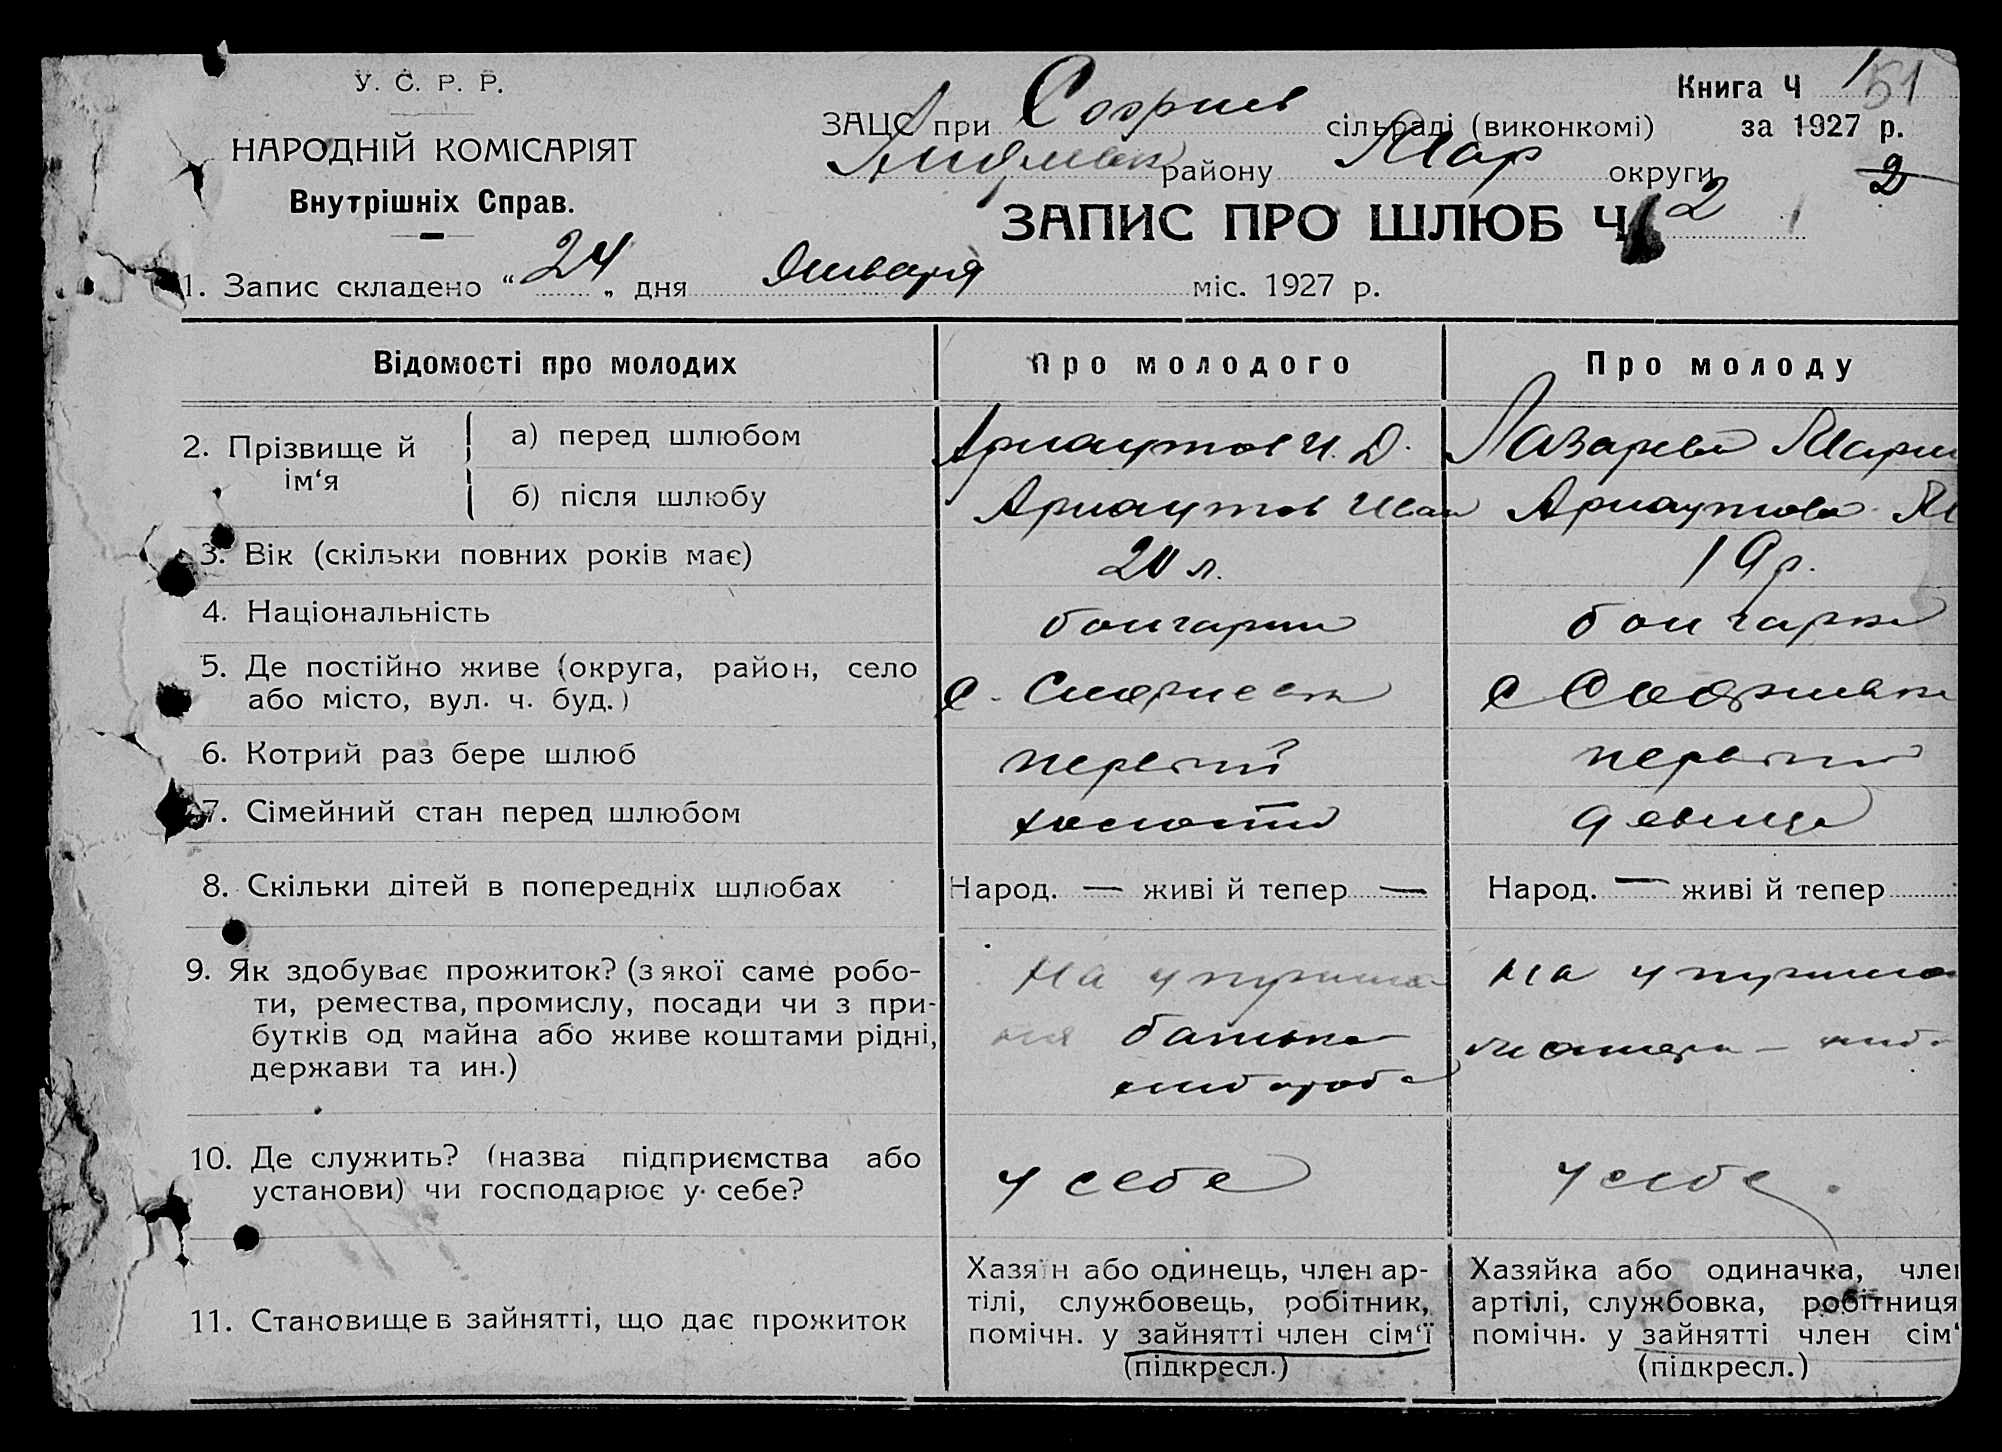 У. С. Р. Р.
НАРОДНІЙ КОМІСАРІЯТ
Внутрішніх Справ.
Книга Ч 1 51
ЗАЦС при Софиев сільраді (виконкомі) за 1927 р.
району Мар округи 2
ЗАПИС ПРО ШЛЮБ Ч 2
1. Запис складено “ 24 „ дня Января міс. 1927 р.
Відомості про молодих Про молодого Про молоду
2. Прізвище й ім‘я
а) перед шлюбом Арнаутов И. Д. Лазарева Мари
б) після шлюбу Арнаутов Иван Арнаутова М
3. Вік (скільки повних років має) 20 л. 19 р.
4. Національність болгарин болгарка
5. Де постійно живе (округа, район, село
або місто, вул. ч. буд.) с. Софиевка с Софиевка
6. Котрий раз бере шлюб первый первый
7. Сімейний стан перед шлюбом холостой девица
8. Скільки дітей в попередніх шлюбах Народ. — живі й тепер — Народ. — живі й тепер
9. Як здобуває прожиток? (з якої саме робо-
ти, ремества, промислу, посади чи з при-
бутків од майна або живе коштами рідні,
держави та ин.)
На утрима
ння батька
хлібороба
На утрима
10. Де служить? (назва підприємства або
установи) чи господарює у себе?
у себе у себе
11. Становище в зайнятті, що дає прожиток
Хазяїн або одинець, член ар-
тілі, службовець, робітник,
помічн. у зайнятті член сім‘ї
(підкресл.)
Хазяйка або одиначка, член
артілі, службовка, робітниця
помічн. у зайнятті член сім‘
(підкресл.)